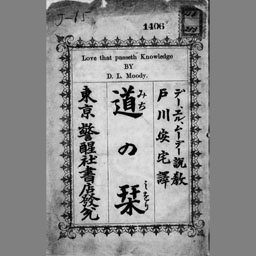 1406
Love that passeth Knowledge
BY
D. L. Moody.
デー、エル、ムーデー説教
戸川安宅譯
道の栞
みち
しをり
東京 警醒社書店發兌